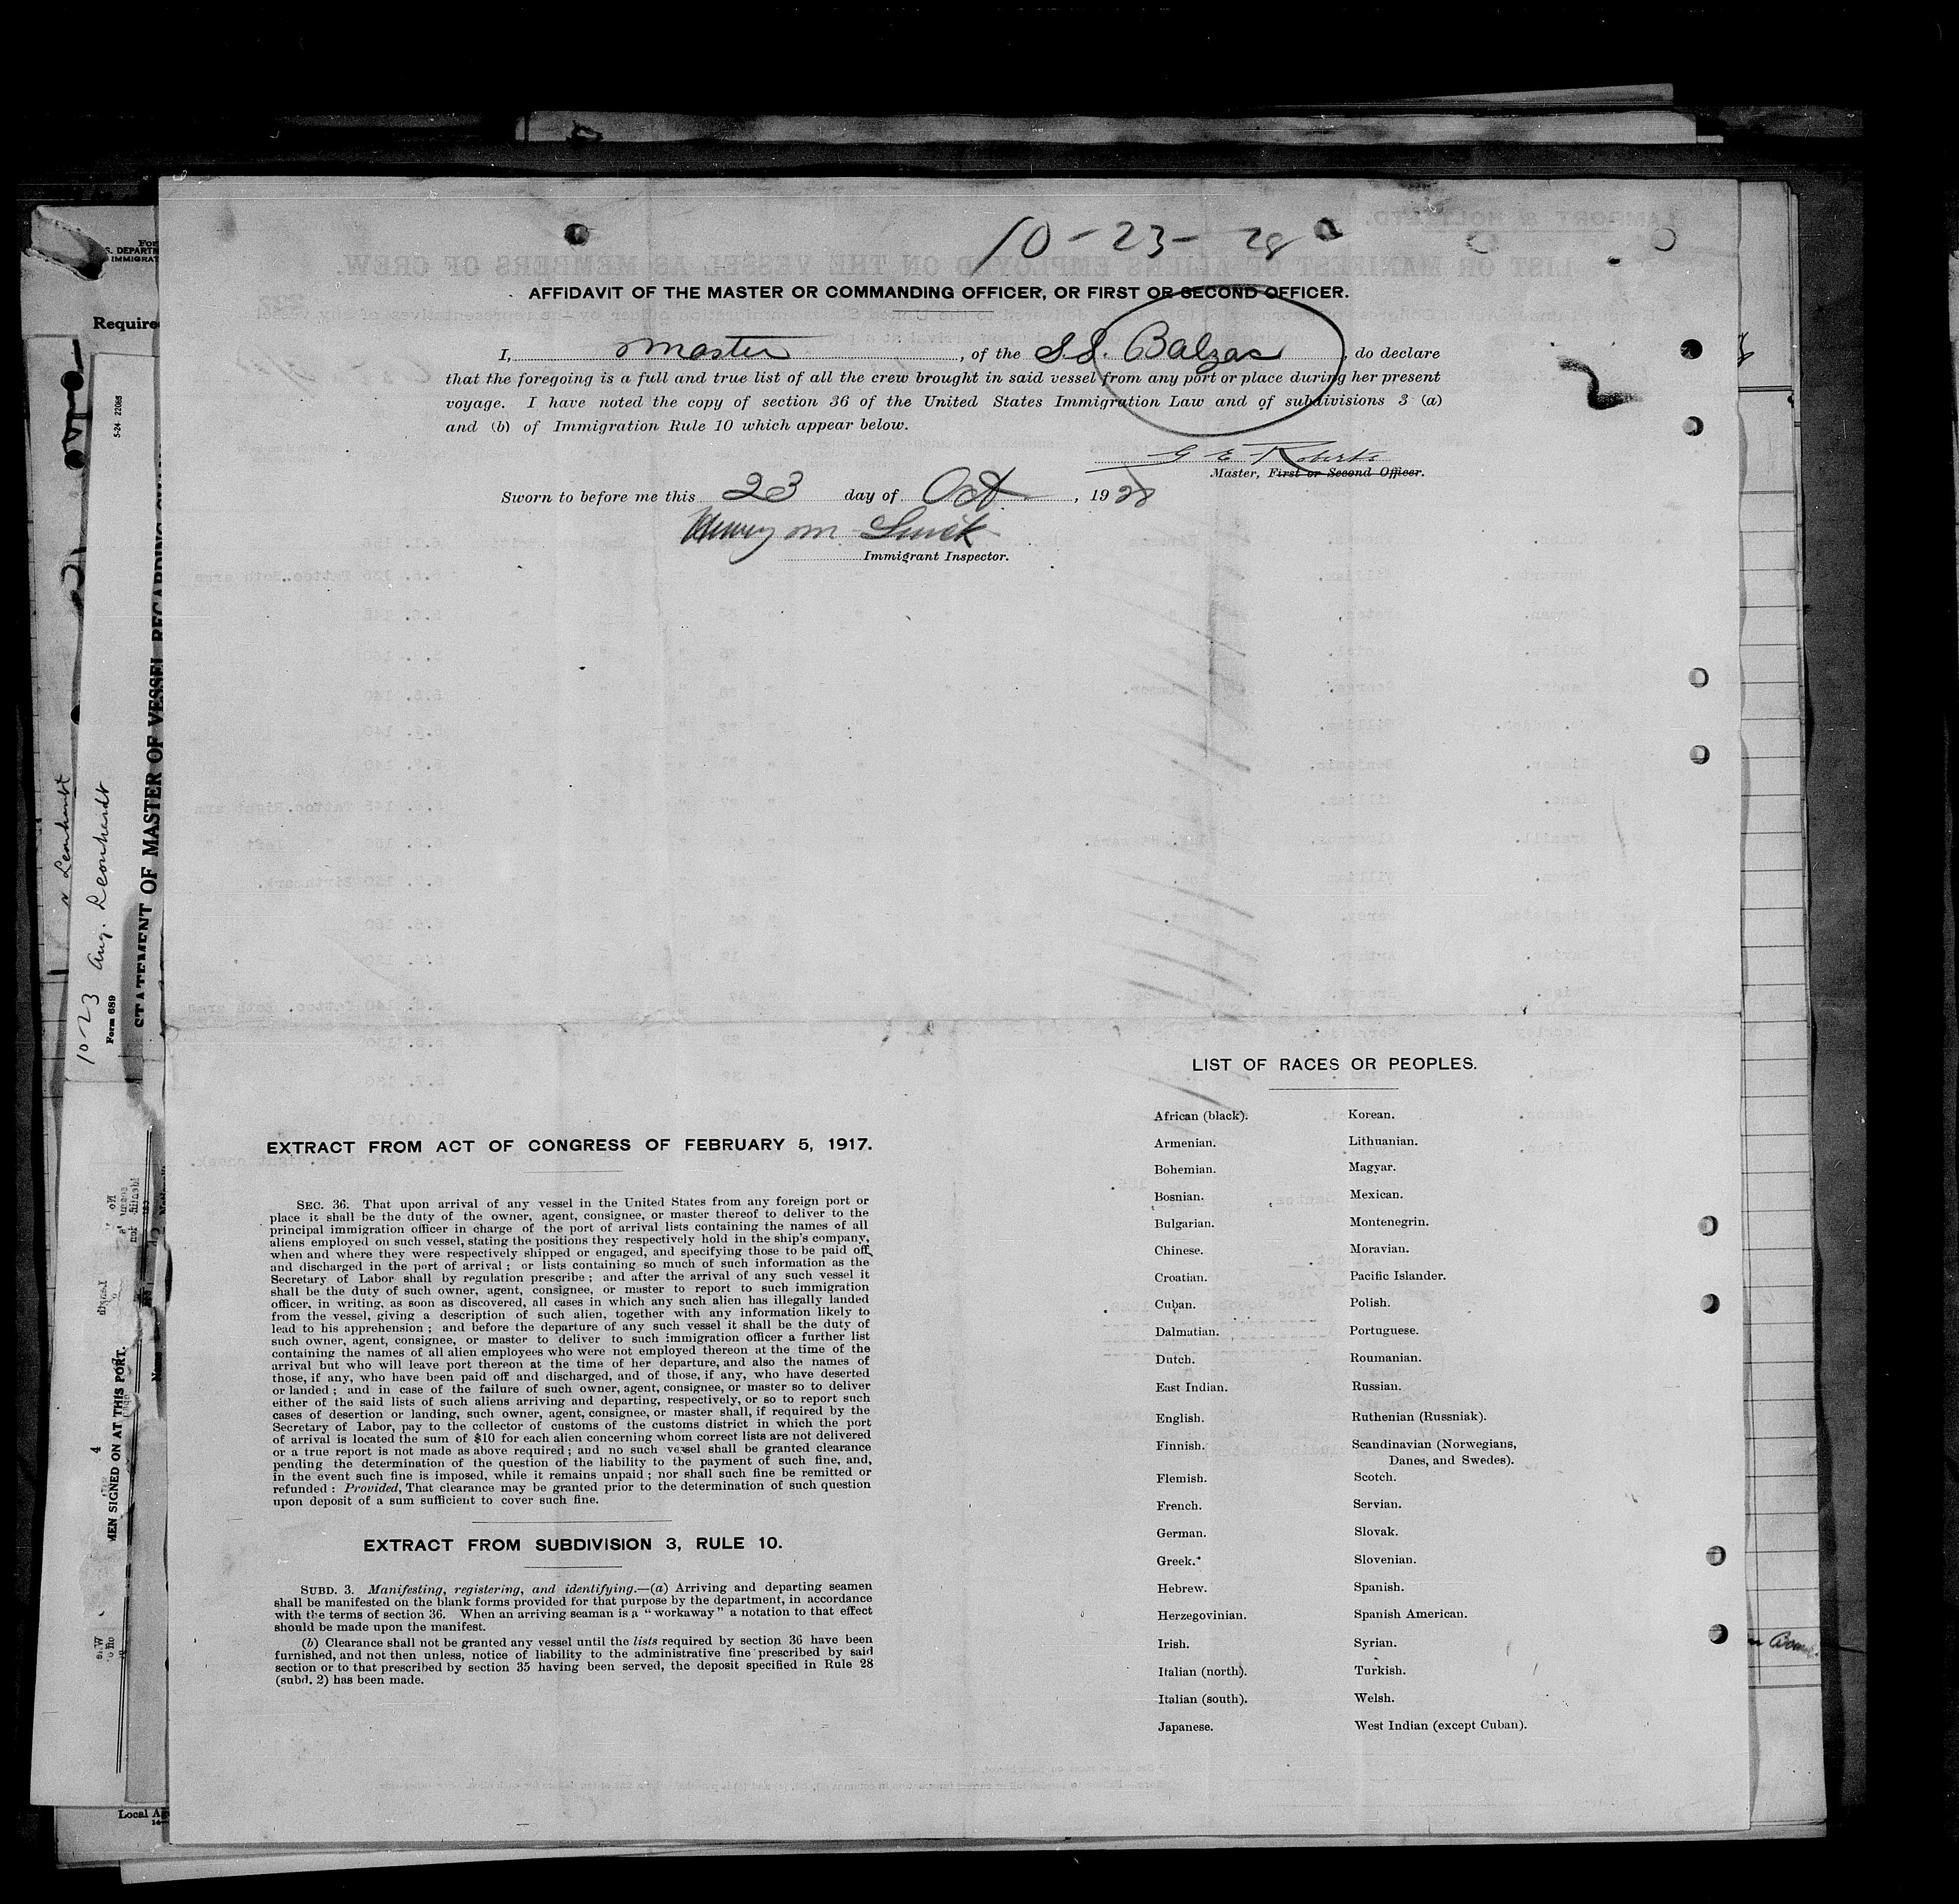 10-23-28
AFFIDAVIT OF THE MASTER OR COMMANDING OFFICER, OR FIRST OR SECOND OFFICER.
I, Master, of the S.S. Balzac, do declare
that the foregoing is a full and true list of all the crew brought in said vessel from any port or place during her present
voyage. I have noted the copy of section 36 of the United States Immigration Law and of subdivisions 3 (a)
and (b) of Immigration Rule 10 which appear below.
2
G E Roberts
Master, First or Second Officer.
Sworn to before me this 23 day of Oct, 1928
Henry M
Immigrant Inspector.
EXTRACT FROM ACT OF CONGRESS OF FEBRUARY 5, 1917.
SEC. 36. That upon arrival of any vessel in the United States from any foreign port or
place it shall be the duty of the owner, agent, consignee, or master thereof to deliver to the
principal immigration officer in charge of the port of arrival lists containing the names of all
aliens employed on such vessel, stating the positions they respectively hold in the ship's company,
when and where they were respectively shipped or engaged, and specifying those to be paid off
and discharged in the port of arrival; or lists containing so much of such information as the
Secretary of Labor shall by regulation prescribe; and after the arrival of any such vessel it
shall be the duty of such owner, agent, consignee, or master to report to such immigration
officer, in writing, as soon as discovered, all cases in which any such alien has illegally landed
from the vessel, giving a description of such alien, together with any information likely to
lead to his apprehension; and before the departure of any such vessel it shall be the duty of
such owner, agent, consignee, or master to deliver to such immigration officer a further list
containing the names of all alien employees who were not employed thereon at the time of the
arrival but who will leave port thereon at the time of her departure, and also the names of
those, if any, who have been paid off and discharged, and of those, if any, who have deserted
or landed; and in case of the failure of such owner, agent, consignee, or master so to deliver
either of the said lists of such aliens arriving and departing, respectively, or so to report such
cases of desertion or landing, such owner, agent, consignee, or master shall, if required by the
Secretary of Labor, pay to the collector of customs of the customs district in which the port
of arrival is located the sum of $10 for each alien concerning whom correct lists are not delivered
or a true report is not made as above required; and no such vessel shall be granted clearance
pending the determination of the question of the liability to the payment of such fine, and,
in the event such fine is imposed, while it remains unpaid; nor shall such fine be remitted or
refunded: Provided, That clearance may be granted prior to the determination of such question
upon deposit of a sum sufficient to cover such fine.
EXTRACT FROM SUBDIVISION 3, RULE 10.
SUBD. 3. Manifesting, registering, and identifying.—(a) Arriving and departing seamen
shall be manifested on the blank forms provided for that purpose by the department, in accordance
with the terms of section 36. When an arriving seaman is a "workaway" a notation to that effect
should be made upon the manifest.
(b) Clearance shall not be granted any vessel until the lists required by section 36 have been
furnished, and not then unless, notice of liability to the administrative fine prescribed by said
section or to that prescribed by section 35 having been served, the deposit specified in Rule 28
(subd. 2) has been made.
LIST OF RACES OR PEOPLES.
African (black).
Armenian.
Bohemian.
Bosnian.
Bulgarian.
Chinese.
Croatian.
Cuban.
Dalmatian.
Dutch.
East Indian.
English.
Finnish.
Flemish.
French.
German.
Greek.
Hebrew.
Herzegovinian.
Irish.
Italian (north).
Italian (south).
Japanese.
Korean.
Lithuanian.
Magyar.
Mexican.
Montenegrin.
Moravian.
Pacific Islander.
Polish.
Portuguese.
Roumanian.
Russian.
Ruthenian (Russniak).
Scandinavian (Norwegians,
Danes, and Swedes).
Scotch.
Servian.
Slovak.
Slovenian.
Spanish.
Spanish American.
Syrian.
Turkish.
Welsh.
West Indian (except Cuban).
Require
5-24 22088
10-23 Aug. Leonhardt
Form 689
STATEMENT OF MASTER OF VESSEL REGARDING
MEN SIGNED ON AT THIS PORT.
4
Local